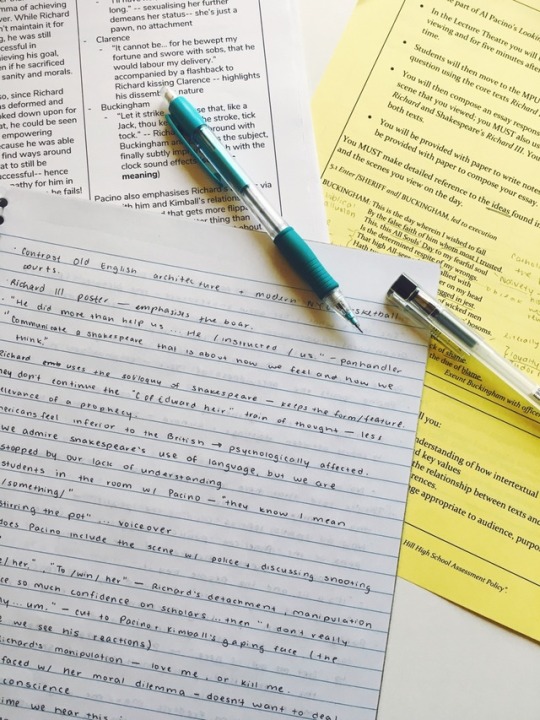 mma of achieving
. While Richard
n't maintain it for
, he was still
ccessful in
ieving his goal,
en if he sacrificed
sanity and morals.
so, since Richard
as deformed and
oked down upon for
at, he could be seen
empowering
ecause he was able
find ways around
at to still be
ccessful-- hence
pathy for him in
he fails!
long." -- sexualising her further
demeans her status-- she's just a
pawn, no attachment
- Clarence
- "It cannot be... for he bewept my
fortune and swore with sobs, that he
would labour my delivery."
accompanied by a flashback to
Richard kissing Clarence -- highlights
his dissemb nature
- Buckingham
- "Let it strike se that, like a
Jack, thou ke the stroke, tick
tock." -- Rich round with
Buckingham a the subject,
finally subtly imp h with the
clock sound effec
meaning)
Pacino also emphasises Richard via
th him and Kimball's relations
t that gets more flipp
rther thing than
about
part of Al Pacino's Look
In the Lecture Theatre you will
viewing and for five minutes after
time.
Students will then move to the MPU
question using the core texts Richard
You will then compose an essay respons
scene that you viewed; you MUST also us
Richard and Shakespeare's Richard III. You
both texts.
You will be provided with paper to write notes
be provided with paper to compose your essay.
YOU MUST make detailed reference to the ideas found in
and the scenes you view on the day.
Enter [SHERIFF and] BUCKINGHAM, led to execution
BUCKINGHAM: This is the day wherein I wished to fall
By the false faith of him whom most I trusted.
This, this All Souls' Day to my fearful soul
Is the determined respite of my wrongs
That high All-See allied with
er on my head
gged in jest.
of wicked men
bosoms.
ck of shame.
the due of blame.
Exeunt Buckingham with officers
ll you:
derstanding of how intertextual
d key values
the relationship between texts and
rences.
ge appropriate to audience, purpo
Hill High School Assessment Policy'.
"Contrast Old English architecture + modern sketball
courts.
Richard III poster — emphasises the boar.
"He did more than help us ... He /instructed / us" - panhandler
"Communicate a Shakespeare that is about how we feel and how we
think"
Richard uses the soliloquy of Shakespeare — keeps the form/feature.
hey don't continue the "of Edward heir" train of thought — less
elevance of a prophecy.
mericans feel inferior to the British → psychologically affected.
we admire shakespeare's use of language, but we are
stopped by our lack of understanding.
students in the room w/ Pacino — "they know I mean
/something/"
stirring the pot" ... voiceover
does Pacino include the scene w/ police + discussing shooting
e/her" "To /win/ her" — Richard's detachment, manipulation
ce so much confidence on scholars ... then "I don't really
y ... um." — cut to Pacino + Kimball's gaping face (the
e we see his reactions)
Richard's manipulation — love me, or kill me.
faced w/ her moral dilemma - doesn't want to deal
conscience
time we hear this